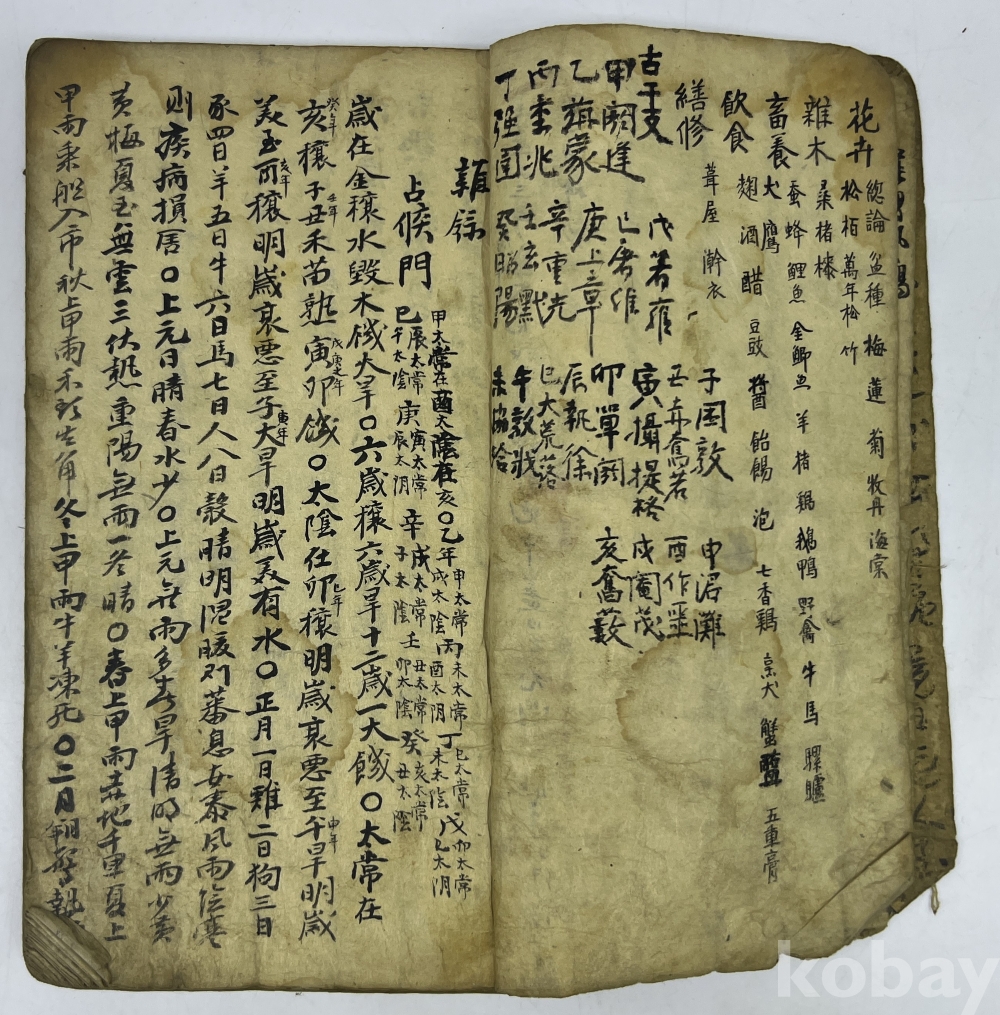 花卉 總論 盆種 梅 蓮 菊 牧丹 海棠
松栢 萬年松 竹
雜木 桑 楮 漆
畜養 蚕 蜂 鯉魚 金鯽魚 羊 猪 鷄 鵝鴨 野禽 牛 馬 騾驢
犬 鷹
飲食 麹 酒 醋 豆豉 醬 飴餳 泡 七香鷄 烹犬 蟹醢 五車膏
繕修 葺屋 澣衣
古干支
甲閼逢 戊著雍 子困敦 申涒灘
乙旃蒙 己屠維 丑赤奮若 酉作噩
丙柔兆 庚上章 寅攝提格 戌閹茂
丁强圉 辛重光 卯單閼 亥奮
壬玄黓 辰執徐
癸昭陽 巳大荒落
午敦牂
未協洽
雜錄
占候門
甲太常在酉太陰在亥〇乙年申太常戌太陰丙未太常酉太阴丁巳太常未太陰戊卯太常巳太阴
己辰太常午太陰庚寅太常辰太阴辛戌太常子太陰壬丑太常卯太陰癸亥太常丑太陰
歲在金穰水毁木饑火旱〇六歲穰六歲旱十二歲一大饑〇太常在
亥穰子丑禾苗熟寅卯饑〇太陰在卯穰明歲衰惡至午旱明歲
美至酉穰明歲衰悪至子大旱明歲美有水〇正月一日雞二日狗三日
豕四日羊五日牛六日馬七日人八日穀晴明温暖則蕃息安泰風雨陰寒
則疾病損居〇上元日晴春水少〇上元無雨多春旱清明無雨少黄
黄梅夏至無雲三伏熱重陽無雨一冬晴〇春上甲雨赤地千里夏上
甲雨乘船入市秋上甲雨禾頭生角冬上甲雨牛羊凍死〇二月朔
kobay